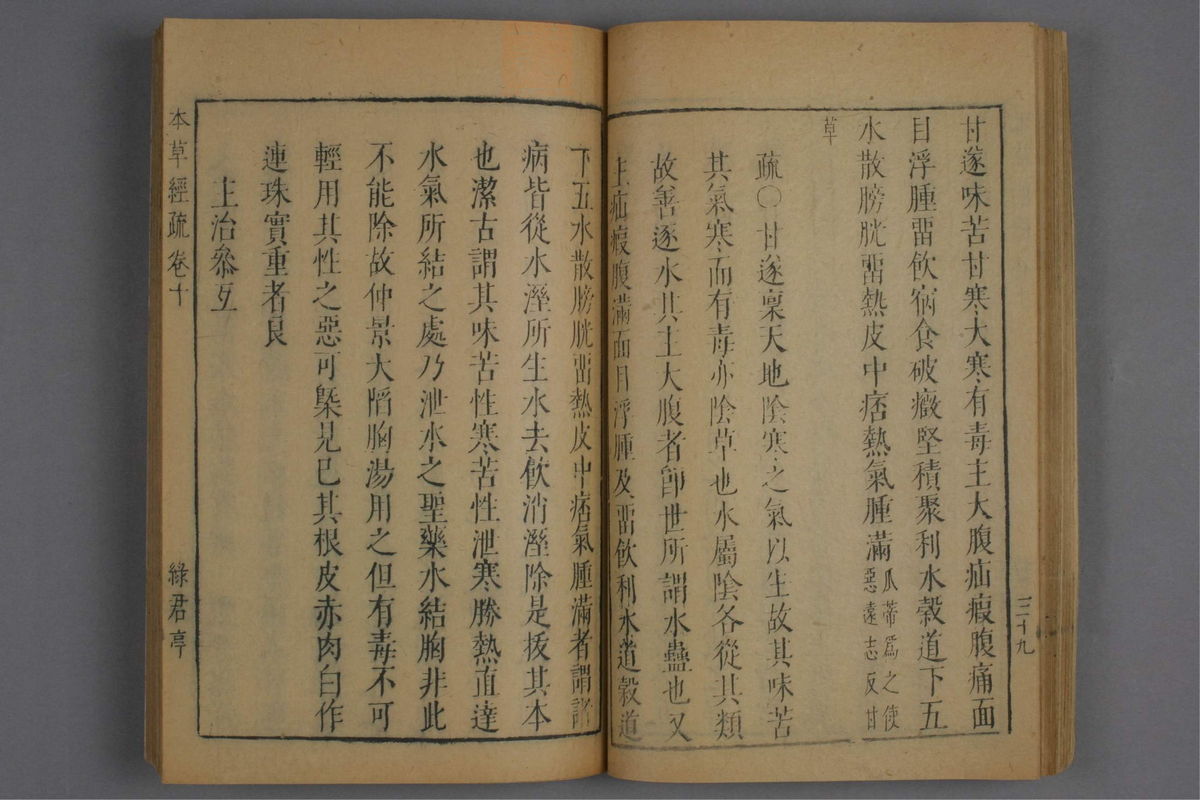 甘遂味苦甘寒大寒有毒主大腹疝瘕腹痛面
目浮腫畱飲宿食破癥堅積聚利水穀道下五
水散膀胱畱熱皮中痞熱氣腫滿瓜蒂爲之使惡遠志反甘
草
疏〇甘遂稟天地陰寒之氣以生故其味苦
其氣寒而有毒亦陰草也水屬陰各從其類
故善逐水其主大腹者卽世所謂水蠱也又
主疝瘕腹滿面目浮腫及畱飲利水道穀道
三十九
下五水散膀胱畱熱皮中痞氣腫滿者謂諸
病皆從水溼所生水去飲消溼除是拔其本
也潔古謂其味苦性寒苦性泄寒勝熱直達
水氣所結之處乃泄水之聖藥水結胸非此
不能除故仲景大陷胸湯用之但有毒不可
輕用其性之惡可槩見已其根皮赤肉白作
連珠實重者良
主治叅互
本草經疏 卷十
綠君亭